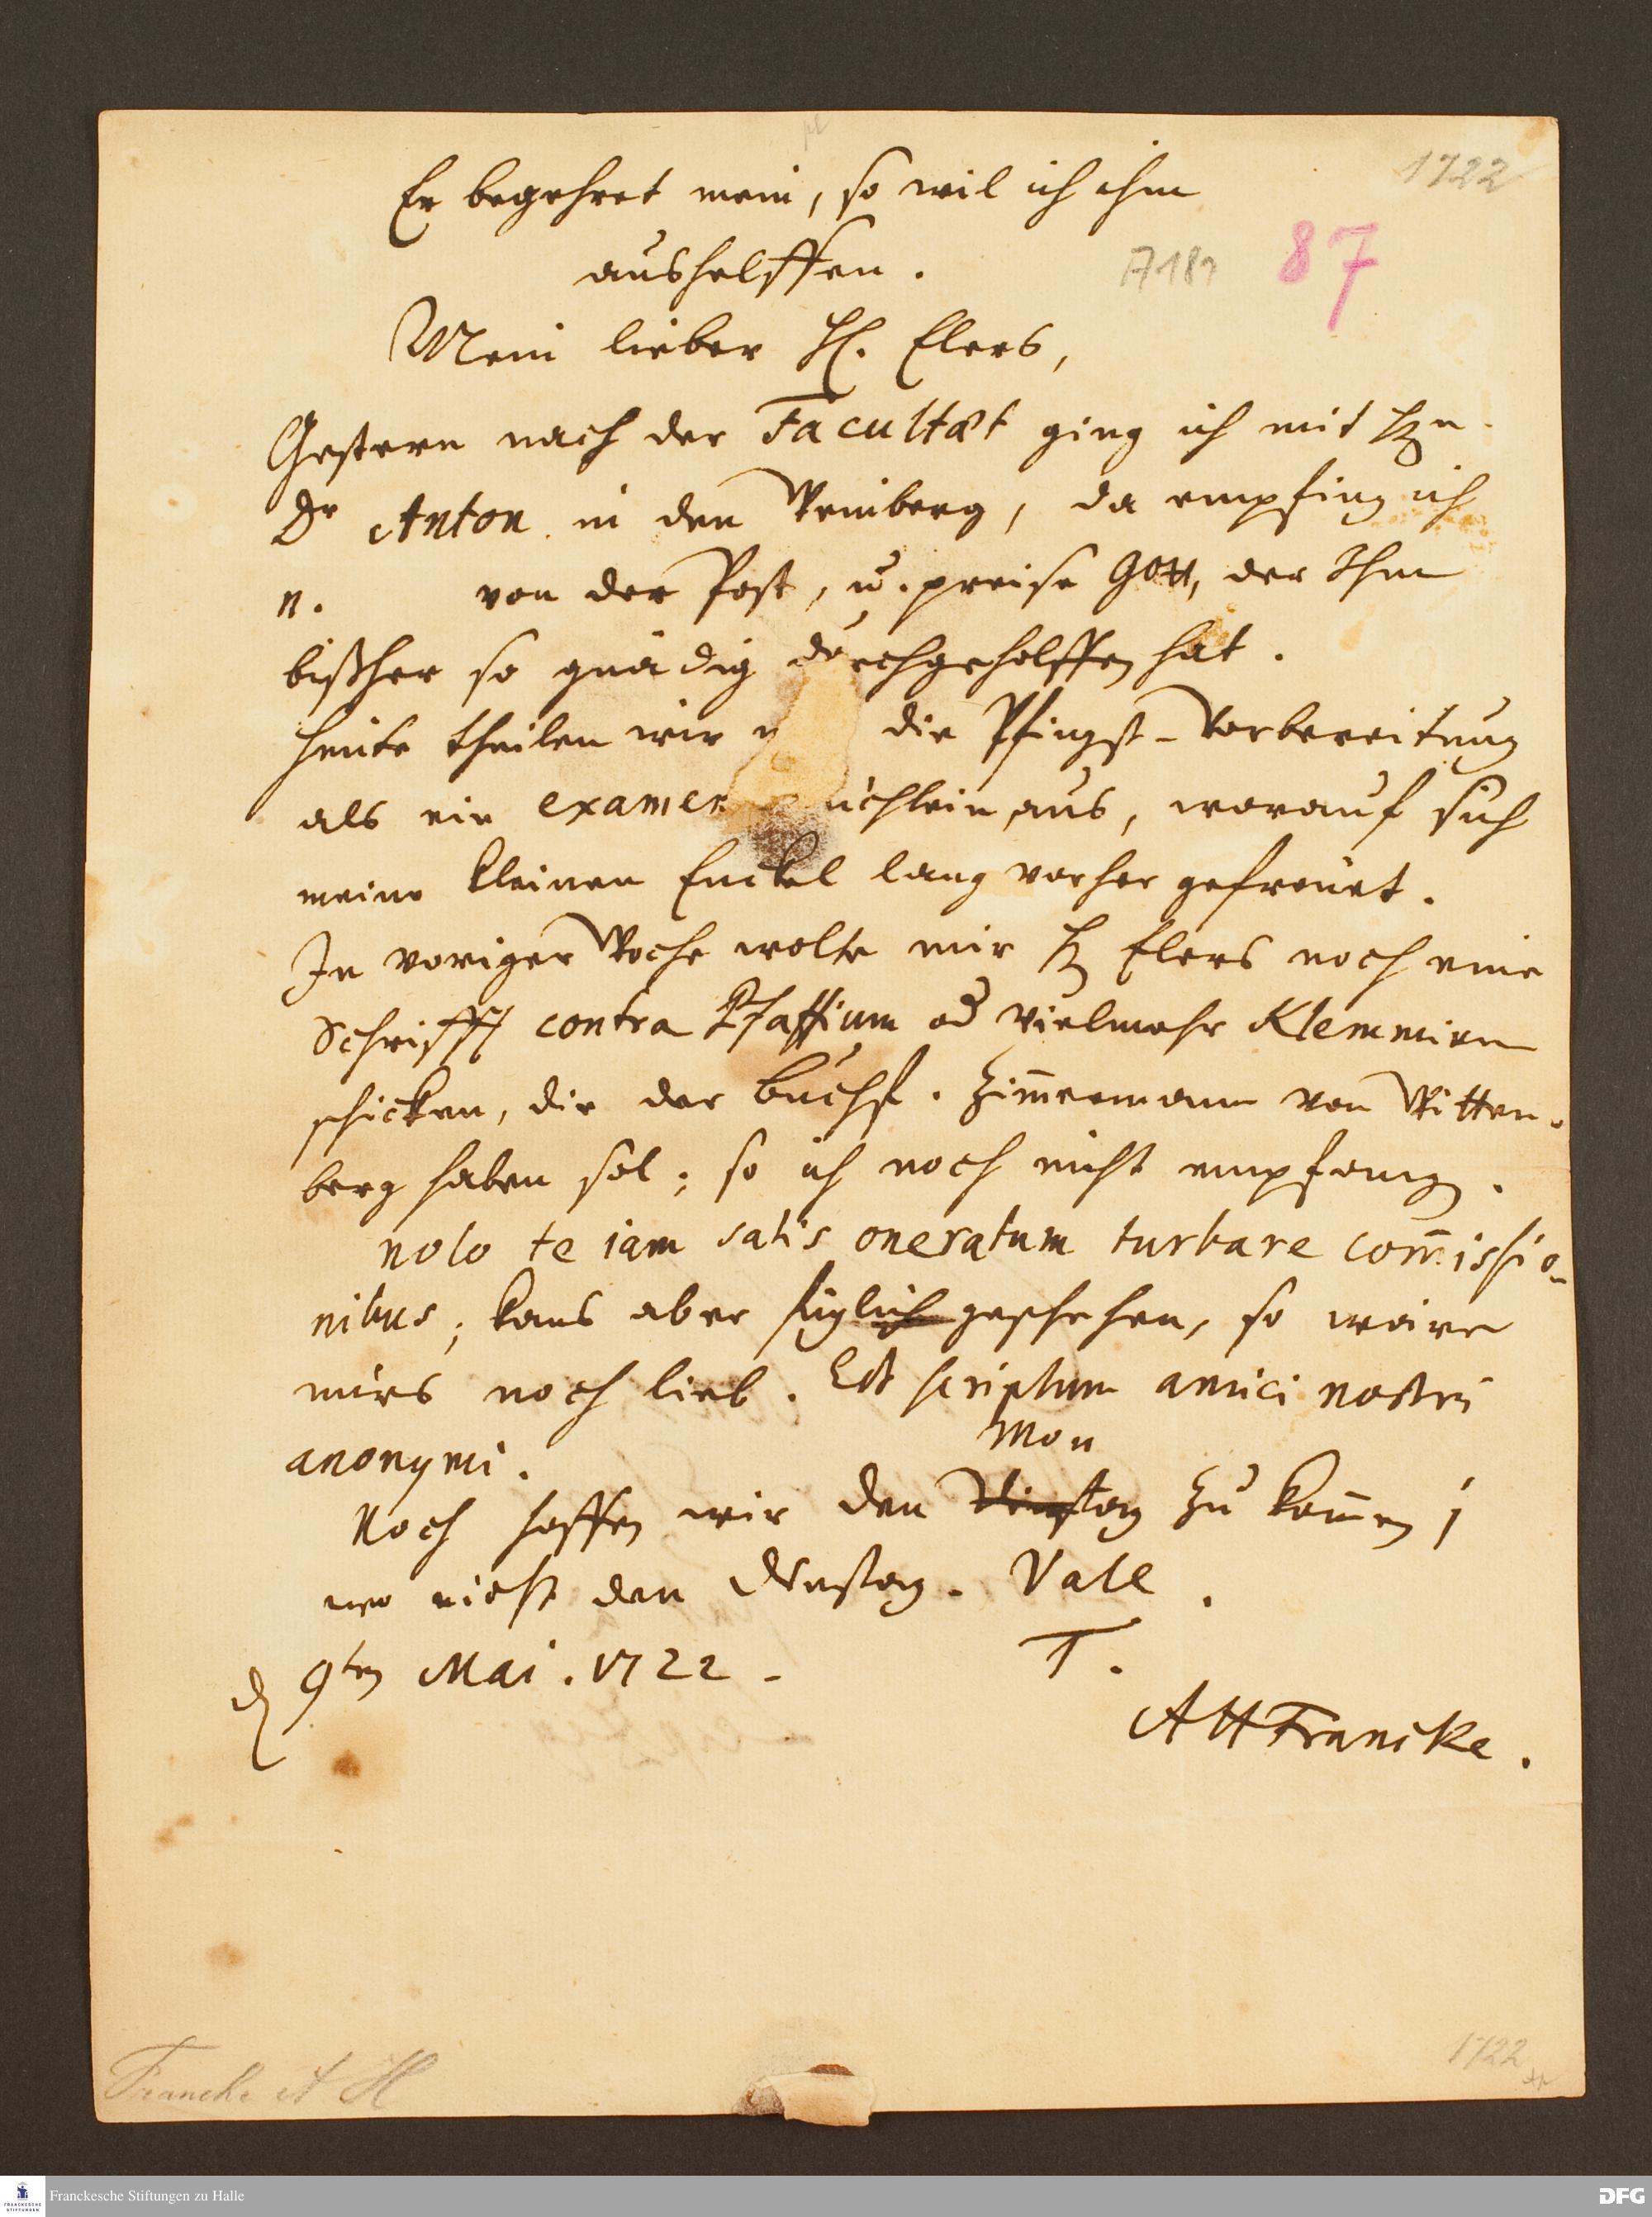 1722
Er begehret mein, so wil ich ihm
aushelffen.
A 181
87
Mein lieber H. Elers,
Gestern nach der Facultät ging ich mit Hn.
Dr Anton in den Weinberg, da empfing ich
n. von der Post, u. preise Gott, der Ihm
bißher so gnädig durchgeholffen hat.
Heute theilen wir die Pfingst-Vorbereitung
als ein examen üchlein aus, worauf sich
meine kleinen Enckel lang vorher gefreuet.
In voriger Woche wolte mir H Elers noch eine
Schrifft contra Pfaffium od vielmehr Klemmium
schicken, die der Buchf. Zim̄ermann von Witten-
berg haben sol; so ich noch nicht empfang.
nolo te iam satis oneratum turbare com̄issio-
nibus; kans aber füglich geschehen, so wäre
mirs noch lieb. Est scriptum amici nostri
anonymi.
Mon
Noch hoffen wir den tag zu kom̄en;
wo nicht den Dinstag. Vale.
d 9ten Mai. 1722. T.
AHFrancke.
Francke A H
1722
Franckesche Stiftungen zu Halle
FRANCKESCHE STIFTUNGEN
DFG